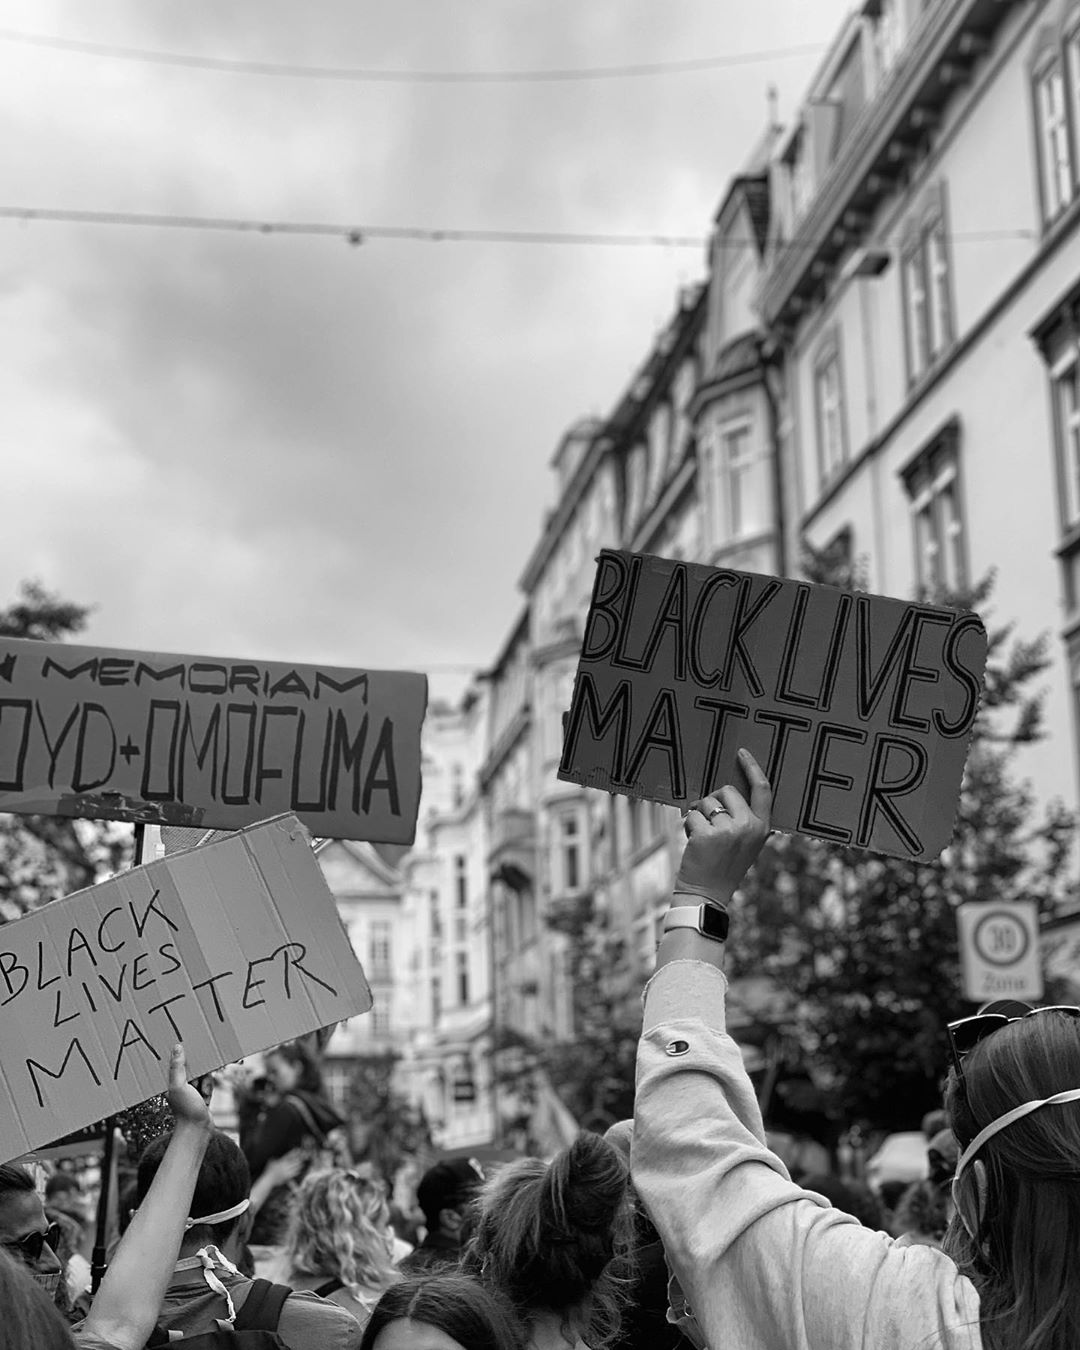 MEMORIAM
OYD+OMOFUMA
BLACK
LIVES
MATTER
BLACK LIVES
MATTER
30
Zone